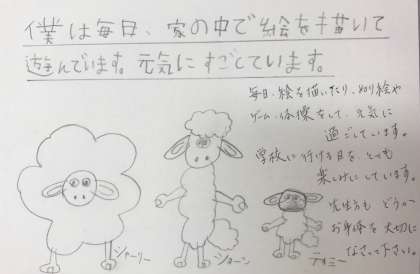 僕は毎日、家の中で絵を描いて
遊んでいます。元気にすごしています。
毎日、絵を描いたり、ぬり絵や
ゲーム、体操をして、元気に
過ごしています。
学校に行ける日を、とても
楽しみにしています。
先生方も どうか
お身体を大切に
なさって下さい。
シャーリー
ショーン
ティミー